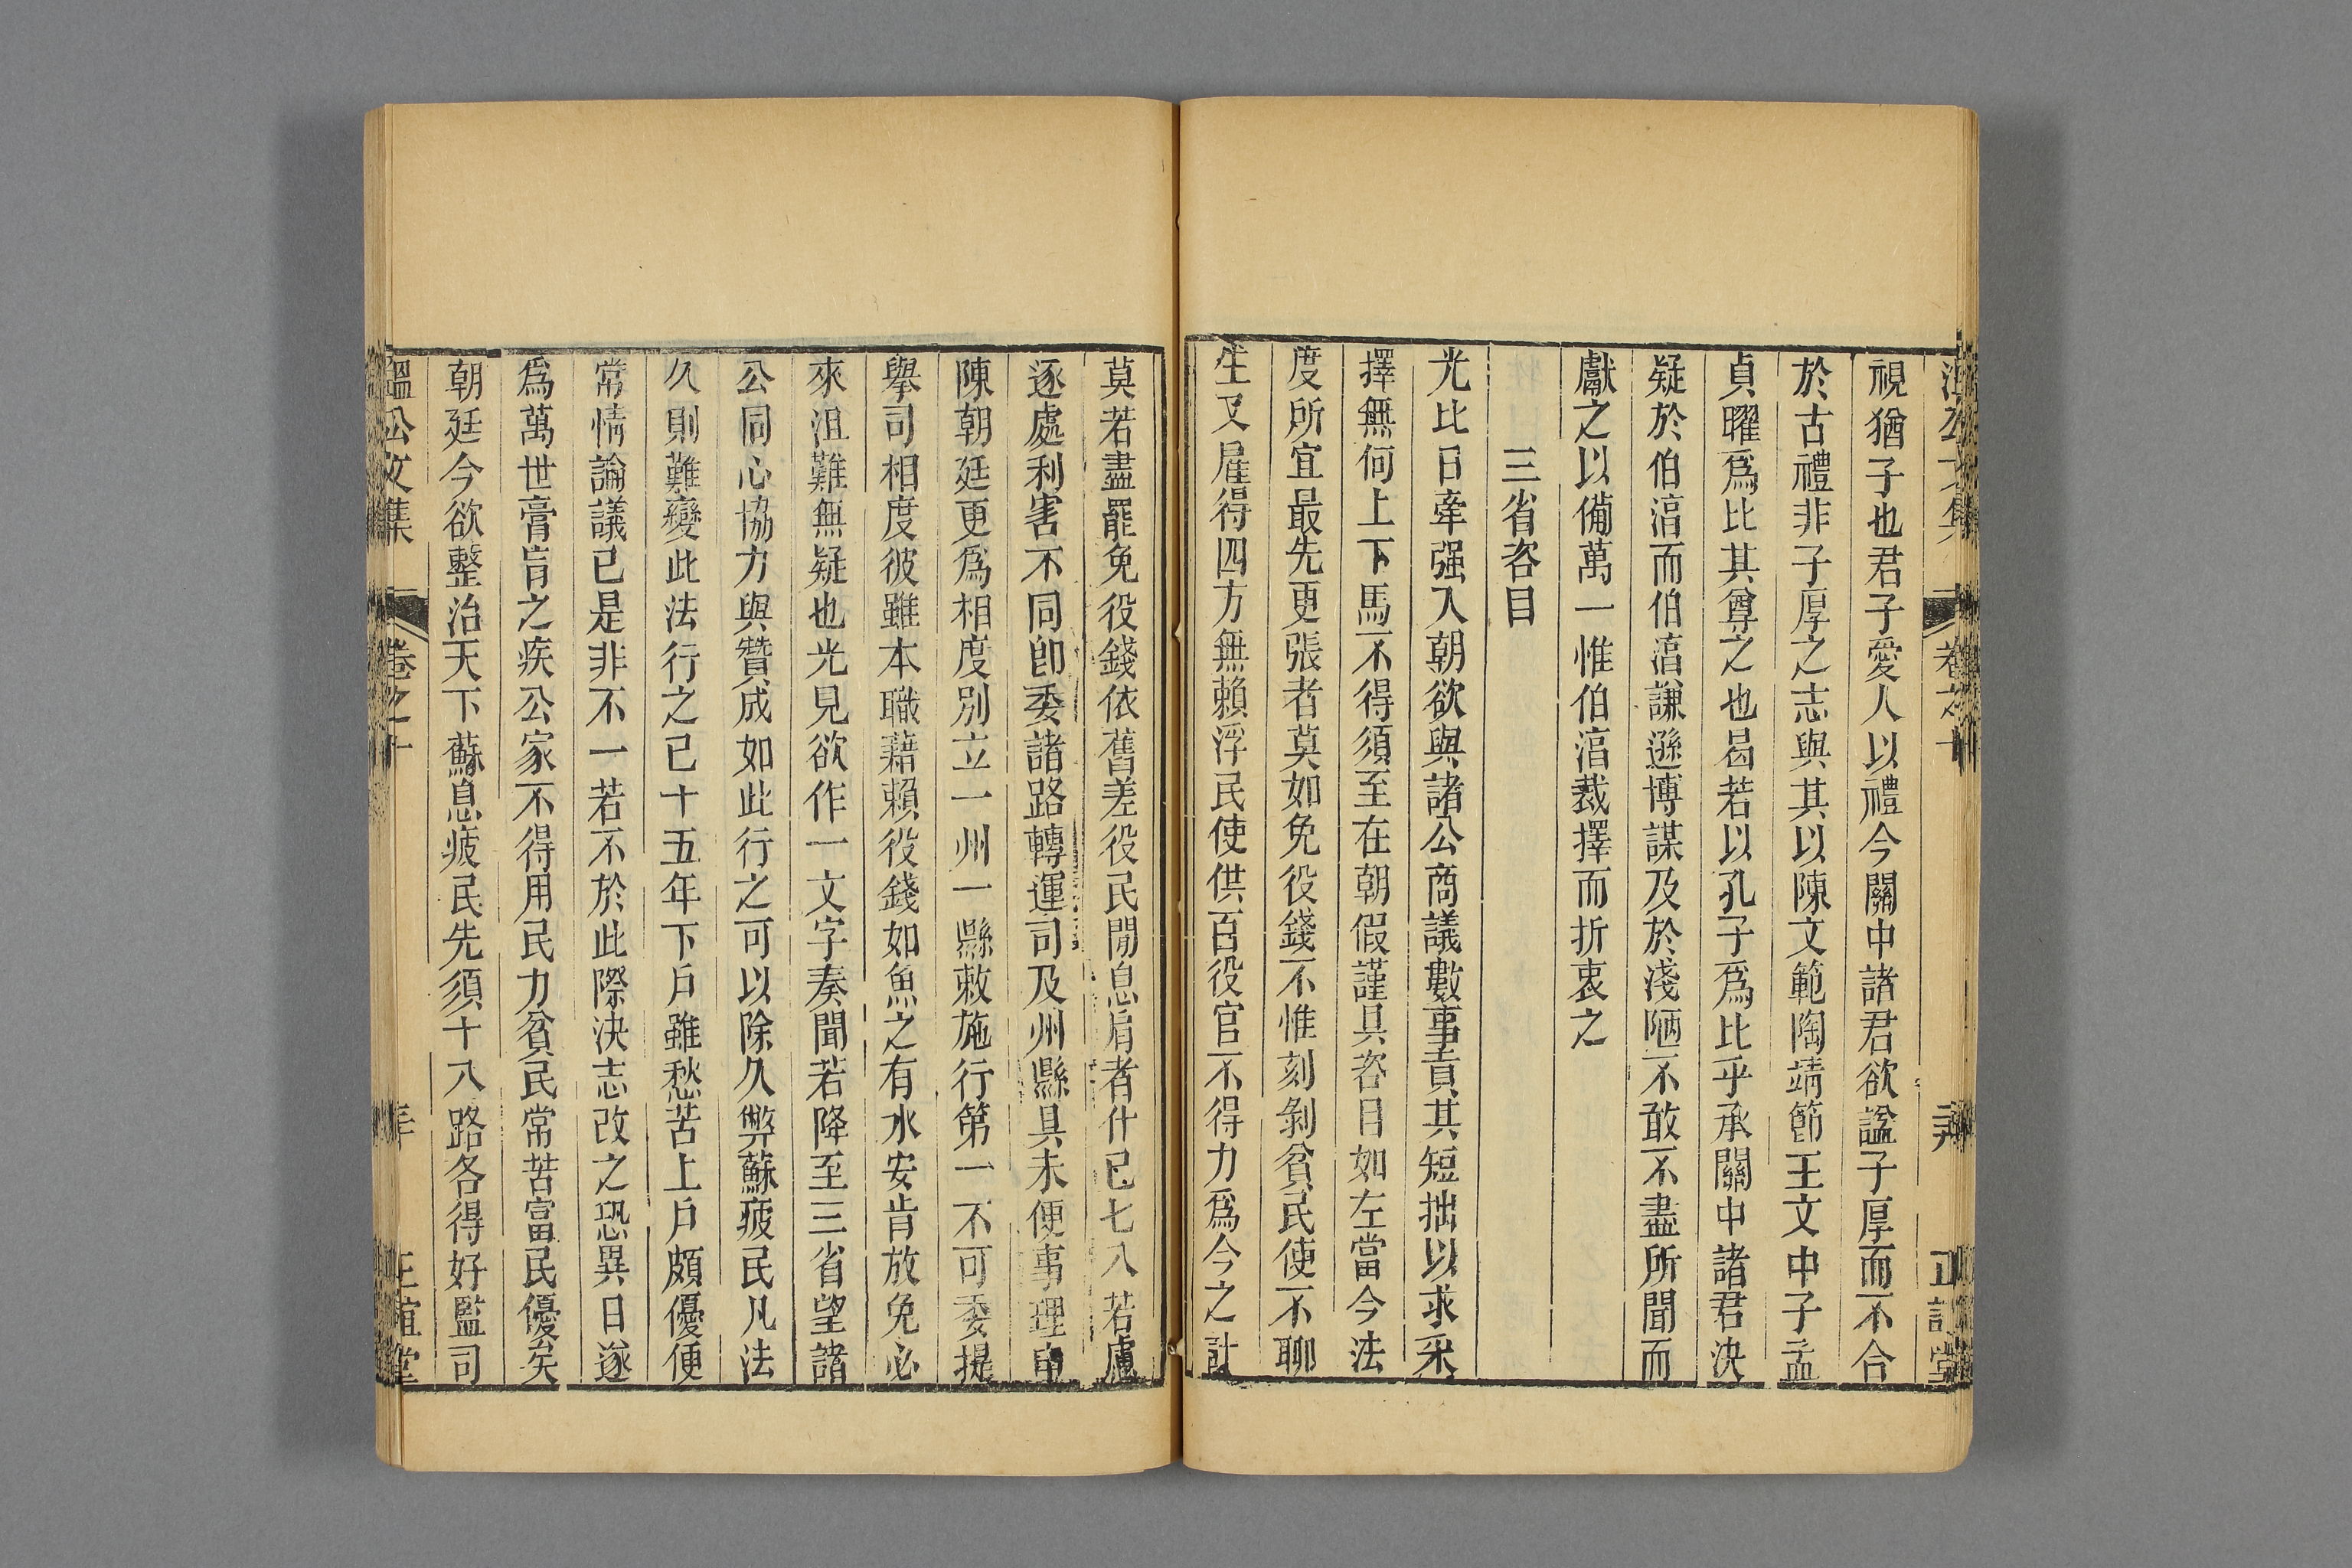 視猶子也君子愛人以禮今關中諸君欲謚子厚而不合
於古禮非子厚之志與其以陳文範陶靖節王文中子孟
貞曜爲比其尊之也曷若以孔子爲比乎承關中諸君決
疑於伯淳而伯淳謙遜博謀及於淺陋不敢不盡所聞而
獻之以備萬一惟伯淳裁擇而折衷之
三省咨目
光比日牽强入朝欲與諸公商議數事責其短拙以求采
擇無何上下馬不得須至在朝假謹具咨目如左當今法
度所宜最先更張者莫如免役錢不惟刻剝貧民使不聊
生又雇得四方無賴浮民使供百役官不得力爲今之計
莫若盡罷免役錢依舊差役民閒息肩者什已七八若慮
逐處利害不同卽委諸路轉運司及州縣具未便事理申
陳朝廷更爲相度別立一州一縣敕施行第一不可委提
舉司相度彼雖本職藉賴役錢如魚之有水安肯放免必
來沮難無疑也光見欲作一文字奏聞若降至三省望諸
公同心協力與贊成如此行之可以除久弊蘇疲民凡法
久則難變此法行之已十五年下戶雖愁苦上戶頗優便
常情論議已是非不一若不於此際決志改之恐異日遂
爲萬世膏肓之疾公家不得用民力貧民常苦富民優矣
朝廷今欲整治天下蘇息疲民先須十八路各得好監司
溫公文集 卷之十